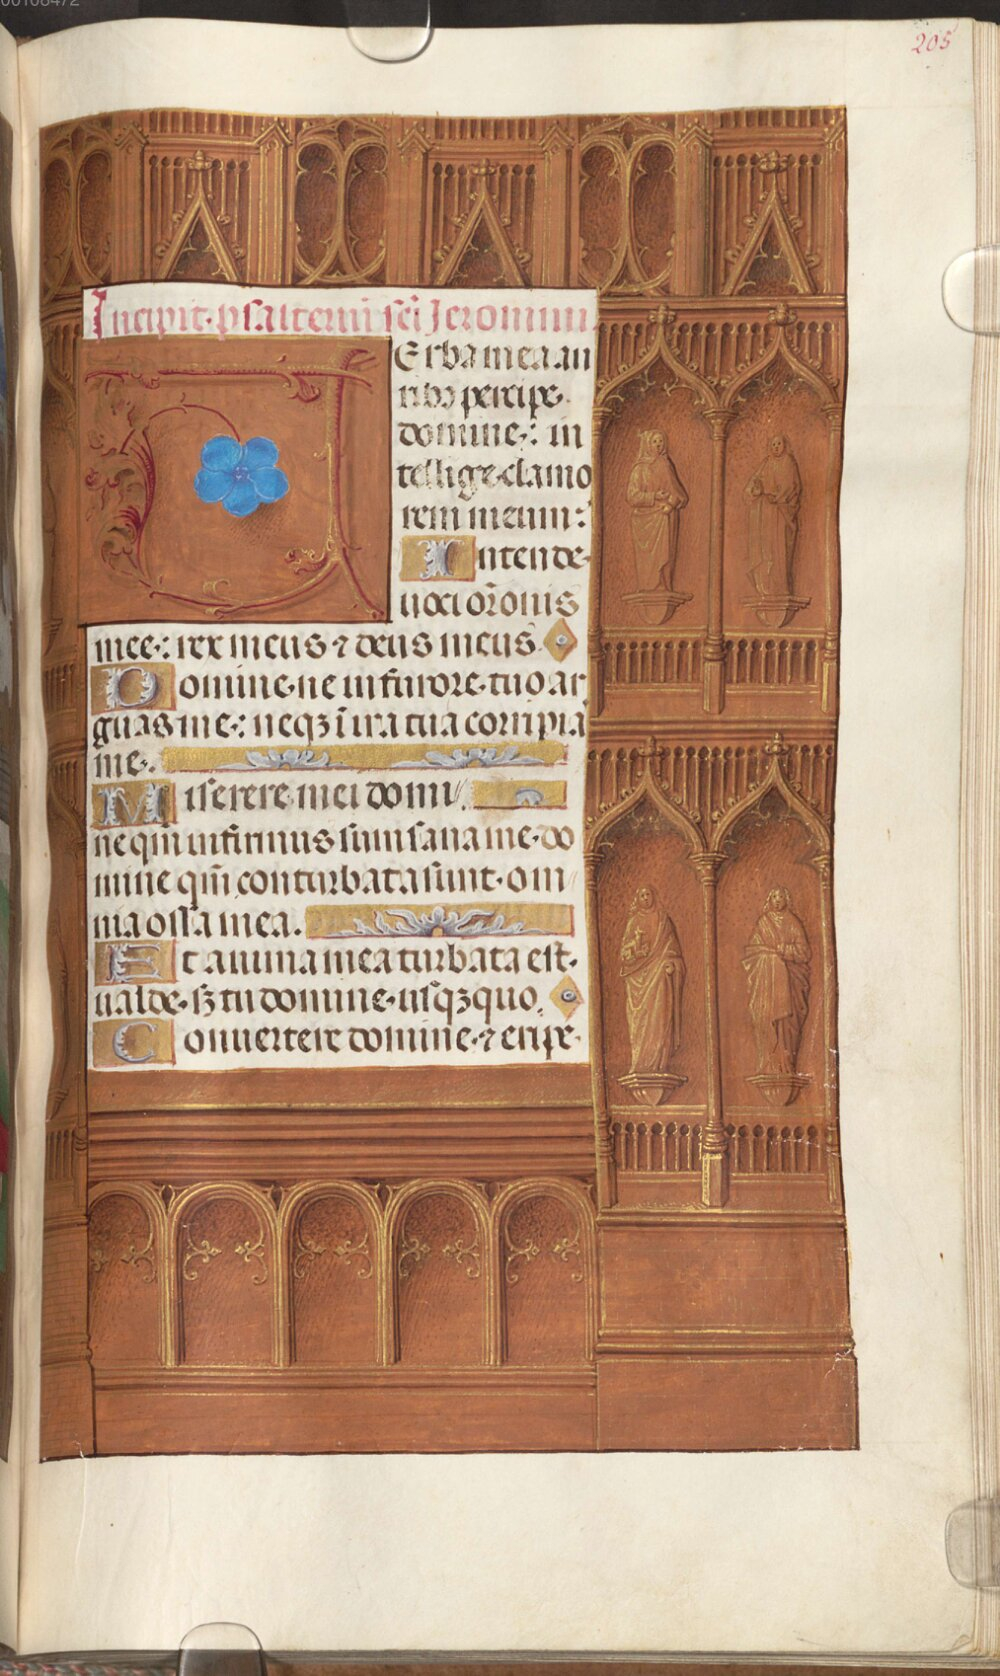 00108472
205
Incipit psalteriū sc̄i Jeronimi.
VErba mea au
ribꝫ percipe
domine: in
tellige clamo
rem meum:
Intende
uoci or̄onis
mee: rex meus ⁊ deus meus
Domine ne in furore tuo ar
guas me: neqꝫ ī ira tua corripia
me.
Miserere mei domi
ne qm̄ infirmus sum sana me do
mine qm̄ conturbata sunt om
nia ossa mea.
Et anima mea turbata est
ualde sꝫ tu domine usqꝫ quo.
Conuertere domine ⁊ eripe